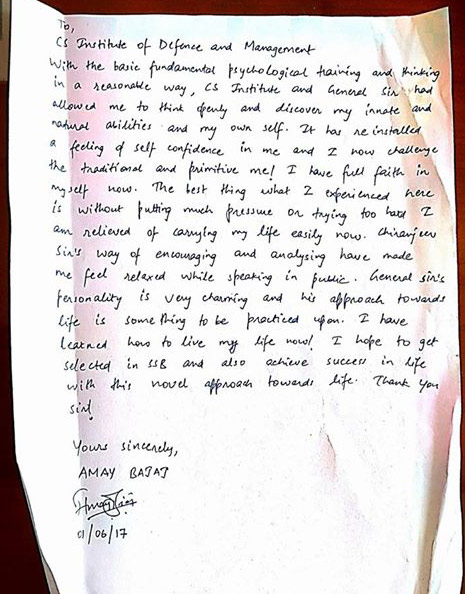 To,
CS Institute of Defence and Management
With the basic fundamental psychological training and thinking
in a reasonable way, CS Institute and General Sir had
allowed me to think openly and discover my innate and
natural abilities and my own self. It has reinstalled
a feeling of self confidence in me and I now challenge
the traditional and primitive me! I have full faith in
myself now. The best thing what I experienced here
is without putting much pressure or trying too hard I
am relieved of carrying my life easily now. Chiranjeev
Sir's way of encouraging and analysing have made
me feel relaxed while speaking in public. General sir's
personality is very charming and his approach towards
life is something to be practiced upon. I have
learned how to live my life now! I hope to get
selected in SSB and also achieve success in life
with this novel approach towards life. Thank you
sir!
Yours sincerely,
AMAY BAJAJ
01/06/17